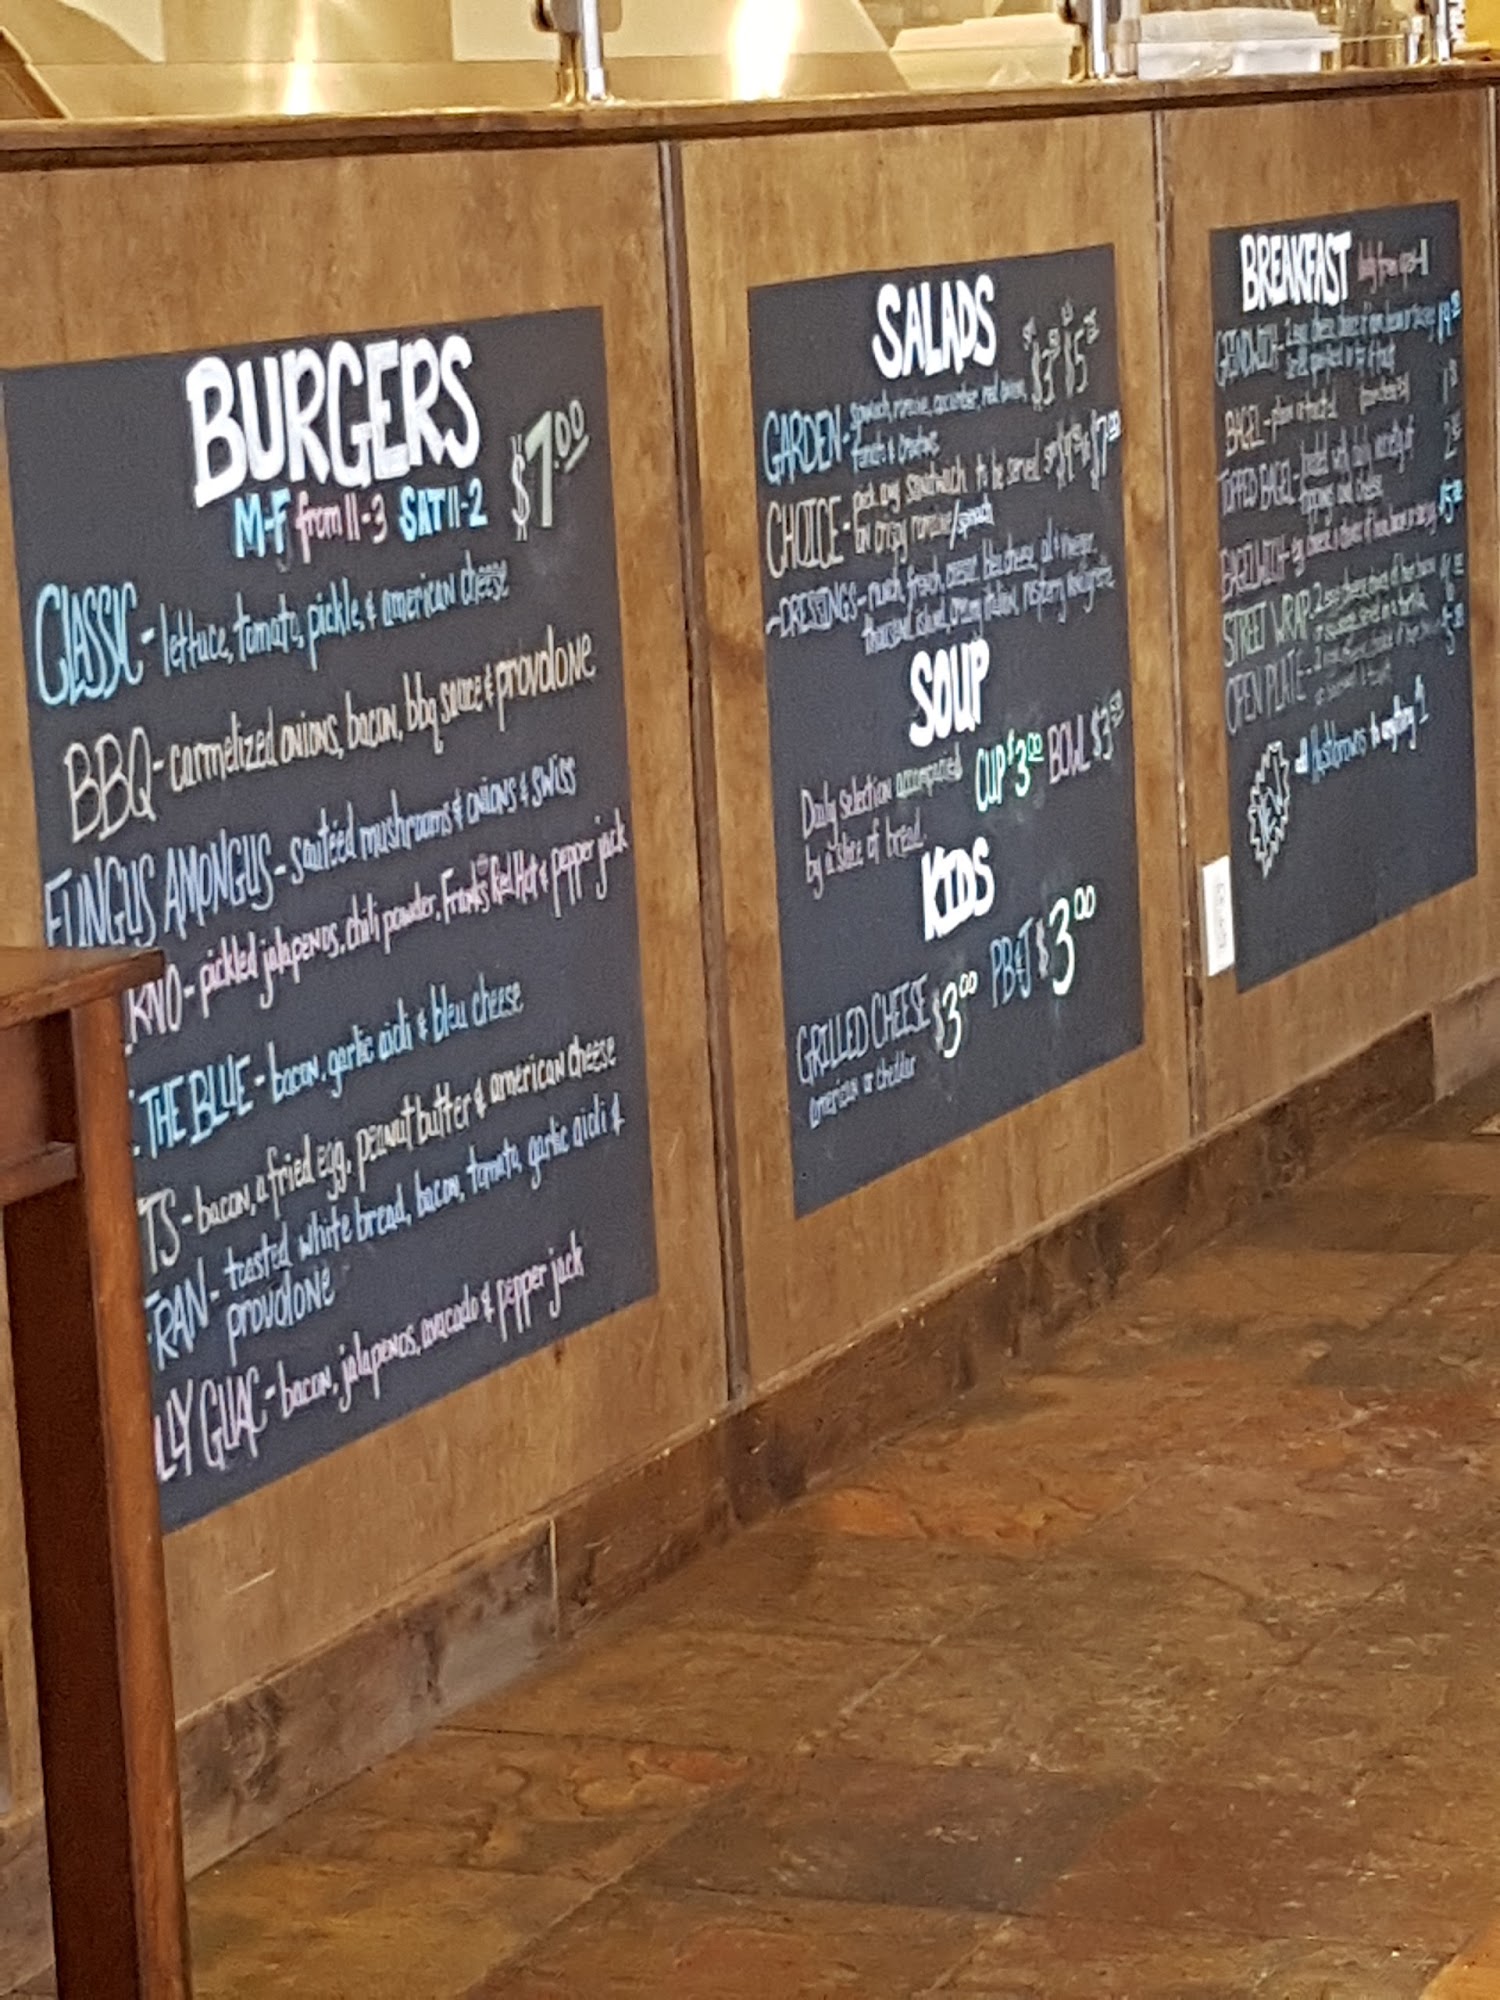 BURGERS
$7.00
M-F from 11-3 SAT 11-2
CLASSIC - lettuce, tomato, pickle, & american cheese
BBQ - carmelized onions, bacon, bbq sauce & provolone
FUNGUS AMONGUS - sautéed mushrooms & onions & swiss
RNO - pickled jalapenos, chili powder, Frank's Red Hot & pepper jack
THE BLUE - bacon, garlic aioli & bleu cheese
TS - bacon, a fried egg, peanut butter & american cheese
RAN - toasted white bread, bacon, tomato, garlic aioli &
provolone
LLY GUAC - bacon, jalapenos, avocado & pepper jack
SALADS
GARDEN - spinach, romaine, cucumber, red onion,
tomato &
CHOICE - pick any sandwich to be served $7.00
on crispy romaine/spinach
-DRESSINGS - ranch, french, bleu cheese, oil & vinegar,
thousand island, creamy italian, raspberry
SOUP
Daily selection accompanied CUP $3.00 BOWL $3.50
by a slice of bread.
KIDS
GRILLED CHEESE $3.00 PB&J $3.00
american or cheddar
BREAKFAST
BAGEL - plain or toasted
TOPPED BAGEL - loaded with daily variety of
toppings and cheese
BAGELWICH -
STREET WRAP
OPEN PLATE -
add Hashbrowns to anything